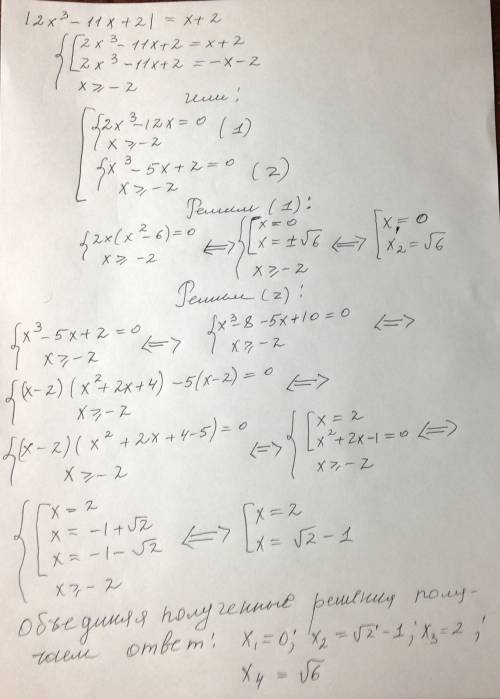 |2x³-11x+2| = x+2
{[2x³-11x+2 = x+2
2x³-11x+2 = -x-2
x ⩾ -2
или:
[{2x³-12x = 0 (1)
x ⩾ -2
{x³-5x+2 = 0 (2)
x ⩾ -2
Решим (1):
{2x(x²-6)=0 <=> {[x=0 <=> [x₁=0
x ⩾ -2 x=±√6 x₂=√6
x ⩾ -2
Решим (2):
{x³-5x+2=0 <=> {x³-8-5x+10=0 <=>
x ⩾ -2 x ⩾ -2
{(x-2)(x²+2x+4)-5(x-2)=0 <=>
x ⩾ -2
{(x-2)(x²+2x+4-5)=0 <=> {[x=2
x²+2x-1=0 <=>
x ⩾ -2 x ⩾ -2
{[x=2
x=-1+√2 <=> [x=2
x=-1-√2 x=√2-1
x ⩾ -2
Объединяя полученные решения полу-
чаем ответ: x₁=0; x₂=√2-1; x₃=2;
x₄=√6